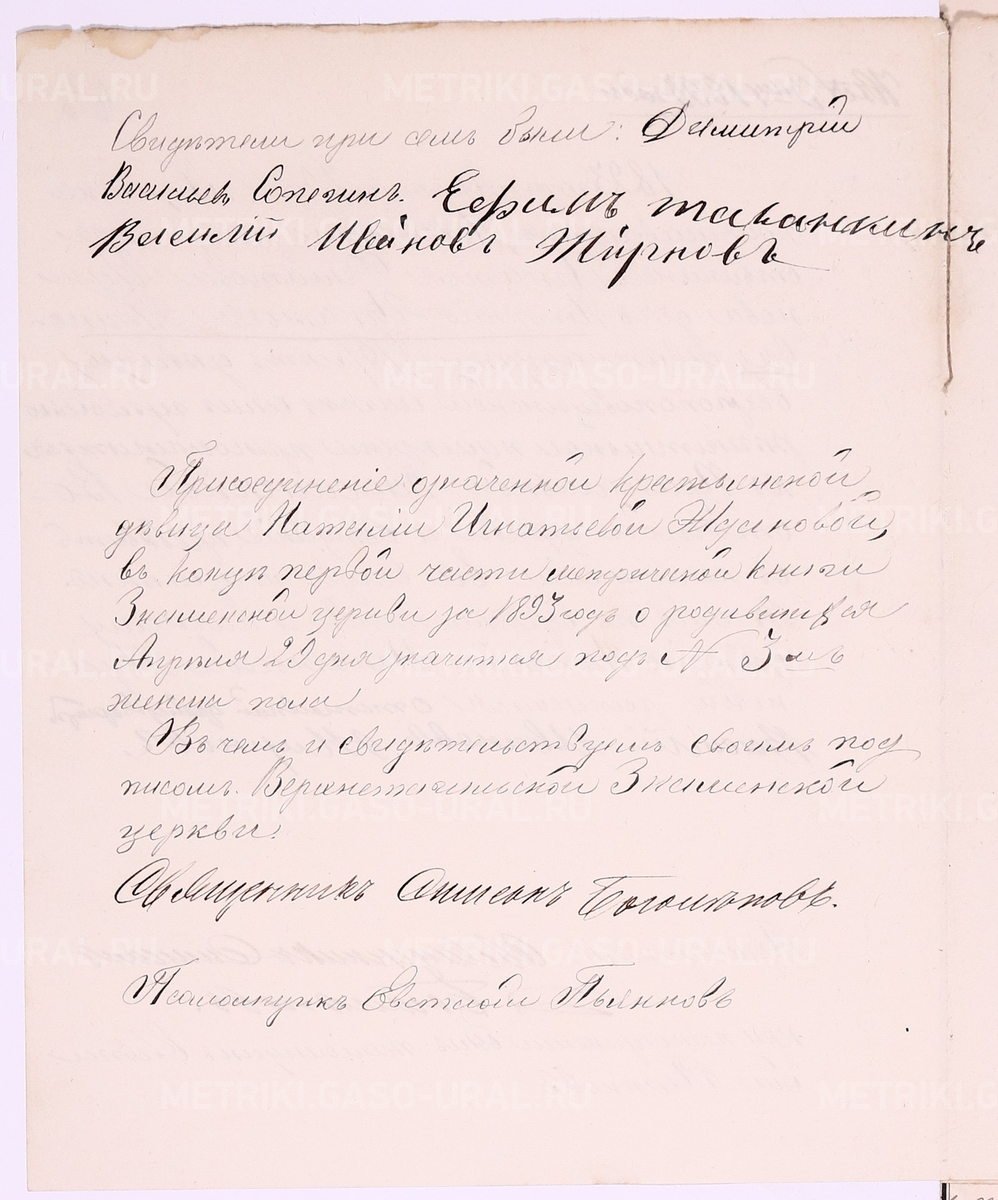 Свидѣтели при семъ были: Димитрій
Васильевъ Сопегинъ. Ефимъ таланкинъ
Василій Ивановъ Жирновъ
Присоединеніе означенной крестьянской
дѣвицы Наталіи Игнатьевой Ждановой,
въ концѣ первой части метрической книги
Знаменской церкви за 1893 годъ о родившихся
Апрѣля 29 дня значится подъ № 3-мъ
женска пола
Въ чемъ и свидѣтельствуемъ своимъ под
писомъ. Верхнетагильской Знаменской
церкви:
Священникъ Симеонъ
Псаломщикъ Евстафій Пьянковъ
METRIKI.GASO-URAL.RU